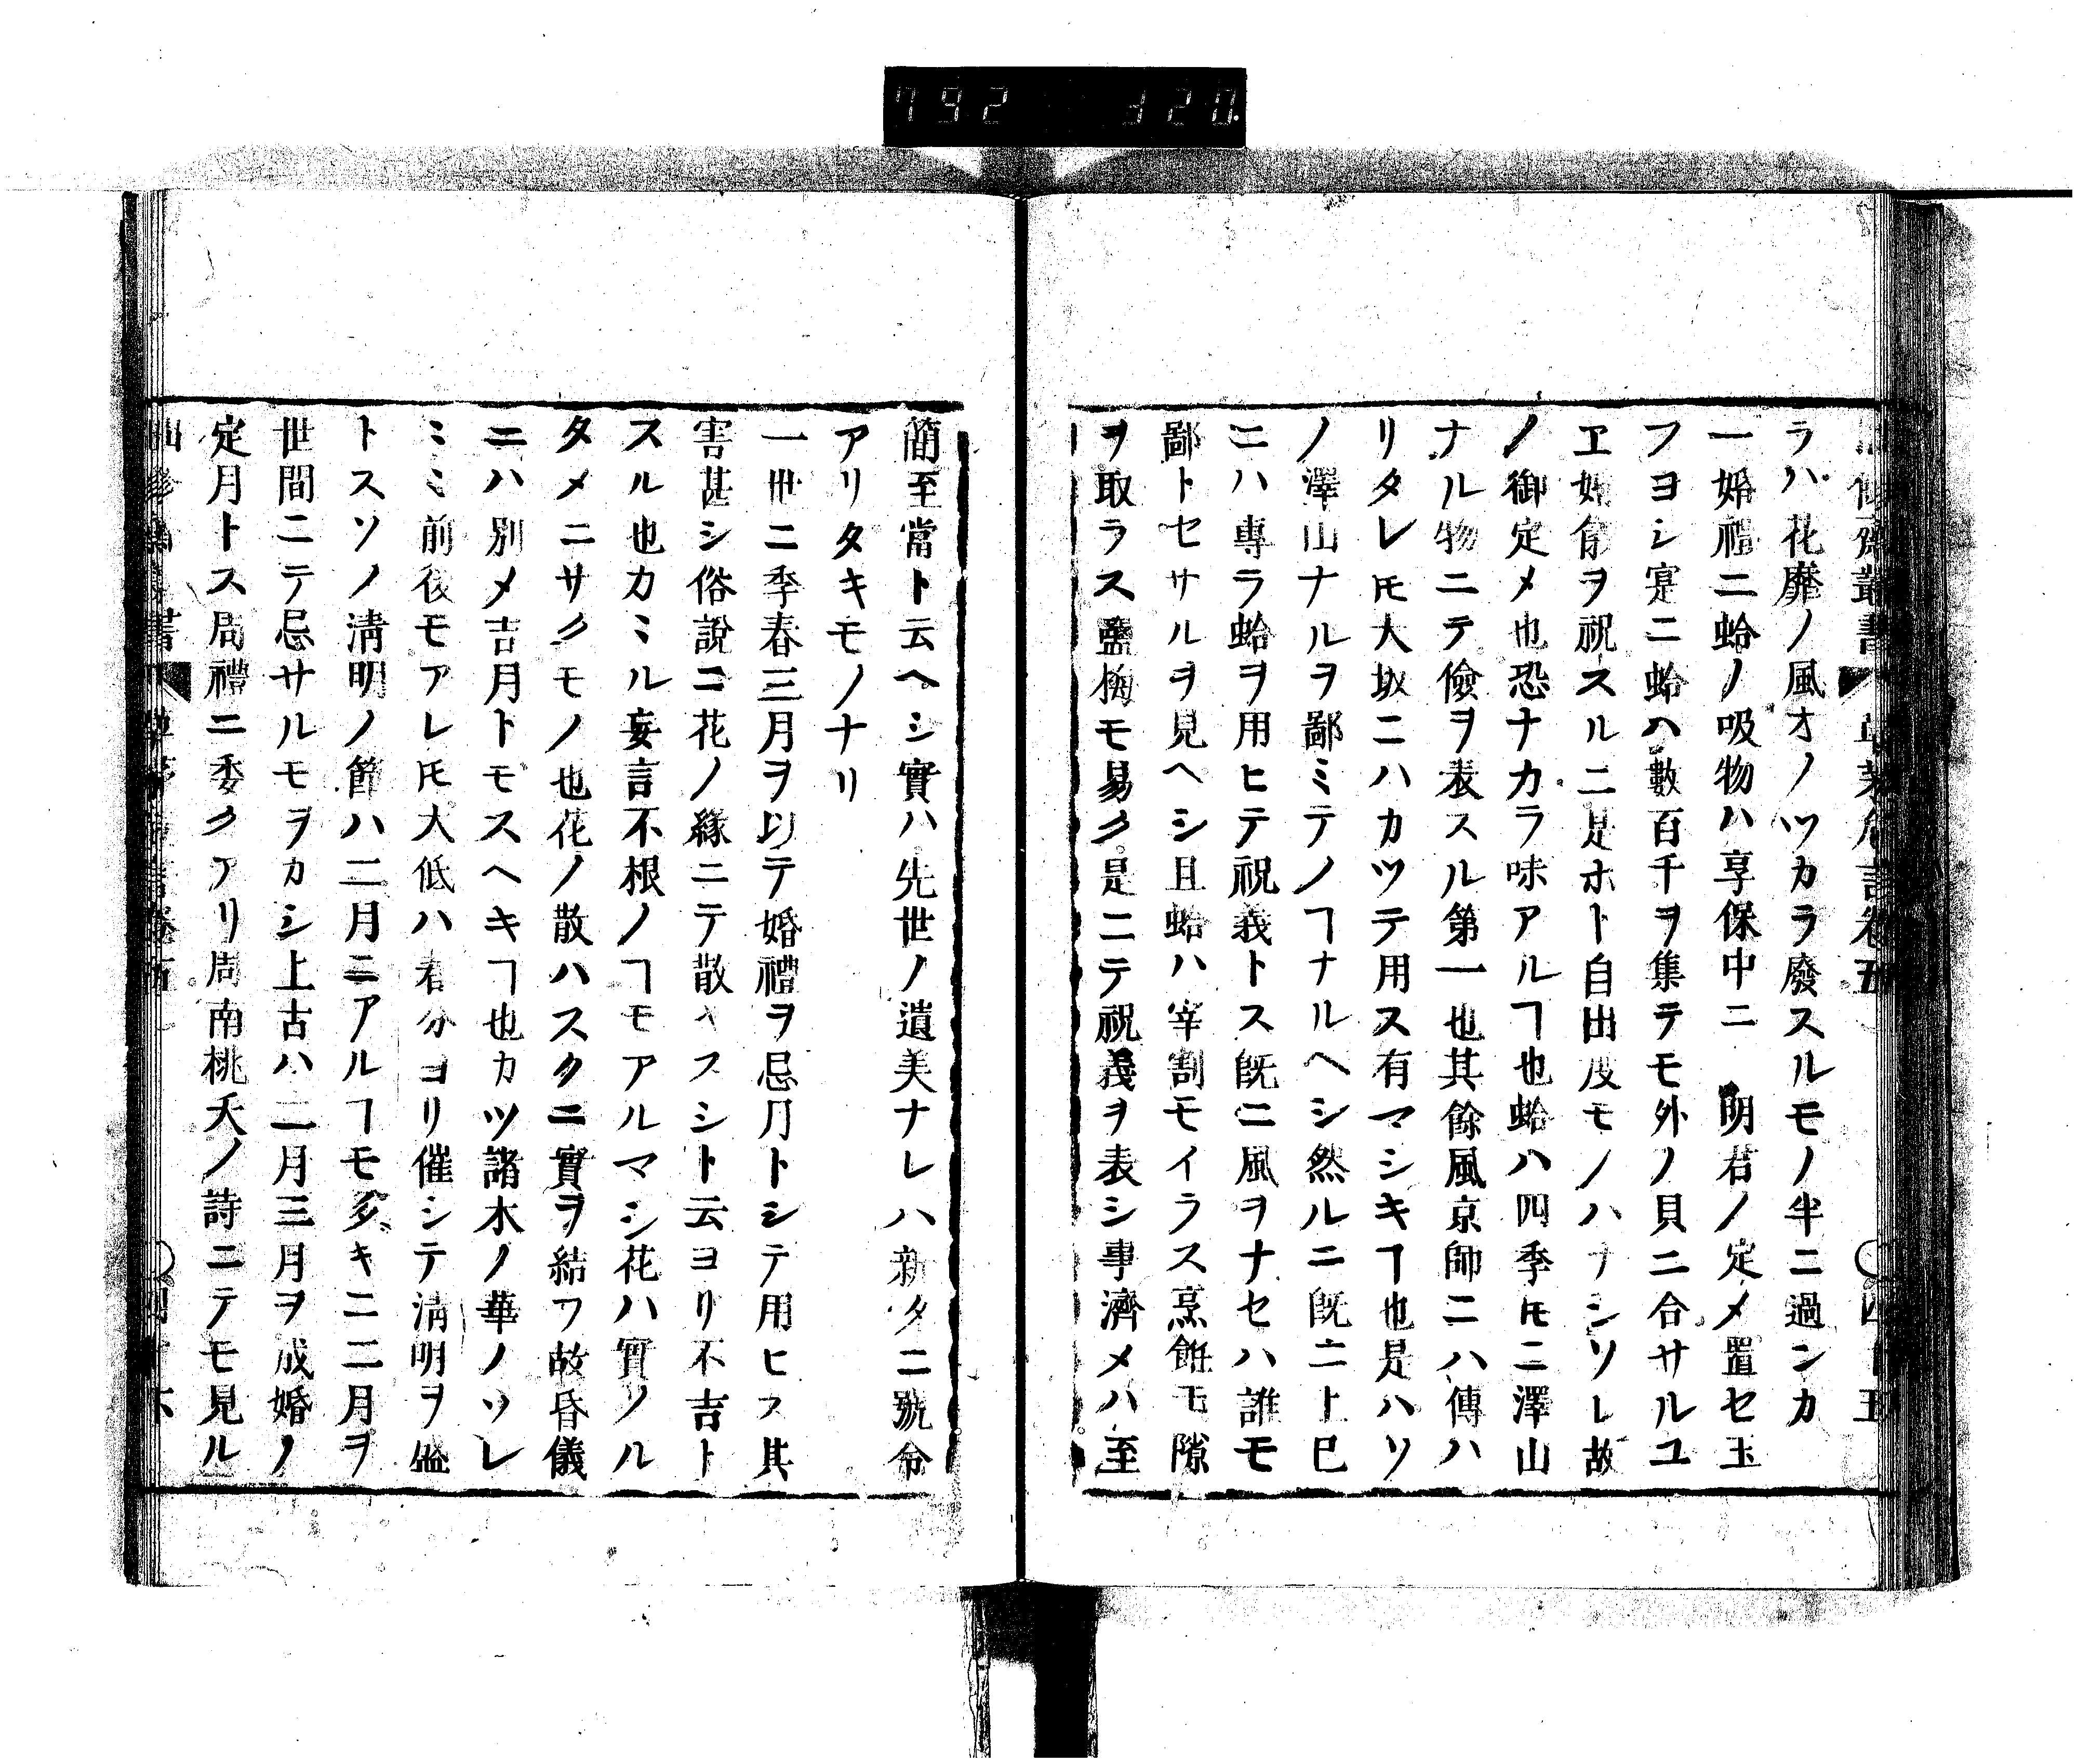 792 320.
叢書 草茅危言卷五 四十五
ラハ花靡ノ風オノツカラ廢スルモノ半ニ過ンカ
一婚禮ニ蛤ノ吸物ハ享保中ニ 明君ノ定メ置セ玉
フヨシ寔ニ蛤ハ數百千ヲ集テモ外ノ貝ニ合サルユ
ヱ婚儀ヲ祝スルニ是ホト自出度モノハナシソレ故
ノ御定メ也恐ナカラ味アルヿ也蛤ハ四季𪜈ニ澤山
ナル物ニテ儉ヲ表スル第一也其餘風京師ニハ傳ハ
リタレ𪜈大坂ニハカツテ用ス有マシキヿ也是ハソ
ノ澤山ナルヲ鄙ミテノヿナルヘシ然ルニ既ニ上巳
ニハ專ラ蛤ヲ用ヒテ祝義トス既ニ風ヲナセハ誰モ
鄙トセサルヲ見ヘシ且蛤ハ宰割モイラス烹飪モ隙
ヲ取ラス鹽梅モ易ク是ニテ祝義ヲ表シ事濟メハ至
簡至當ト云ヘシ實ハ先世ノ遺美ナレハ新タニ號令
アリタキモノナリ
一世ニ季春三月ヲ以テ婚禮ヲ忌月トシテ用ヒス其
害甚シ俗說ニ花ノ緣ニテ散ヤスシト云ヨリ不吉ト
スル也カミル妄言不根ノヿモアルマシ花ハ實ノル
タメニサクモノ也花ノ散ハスクニ實ヲ結フ故昏儀
ニハ別メ吉月トモスヘキヿ也カツ諸木ノ華ノツレ
ミミ前後モアレ𪜈大低ハ春分ヨリ催シテ淸明ヲ盛
トスソノ淸明ノ節ハ二月ニアルヿモ多キニ二月ヲ
世間ニテ忌サルモヲカシ上古ハ二月三月ヲ成婚ノ
定月トス周禮ニ委クアリ周南桃夭ノ詩ニテモ見ル